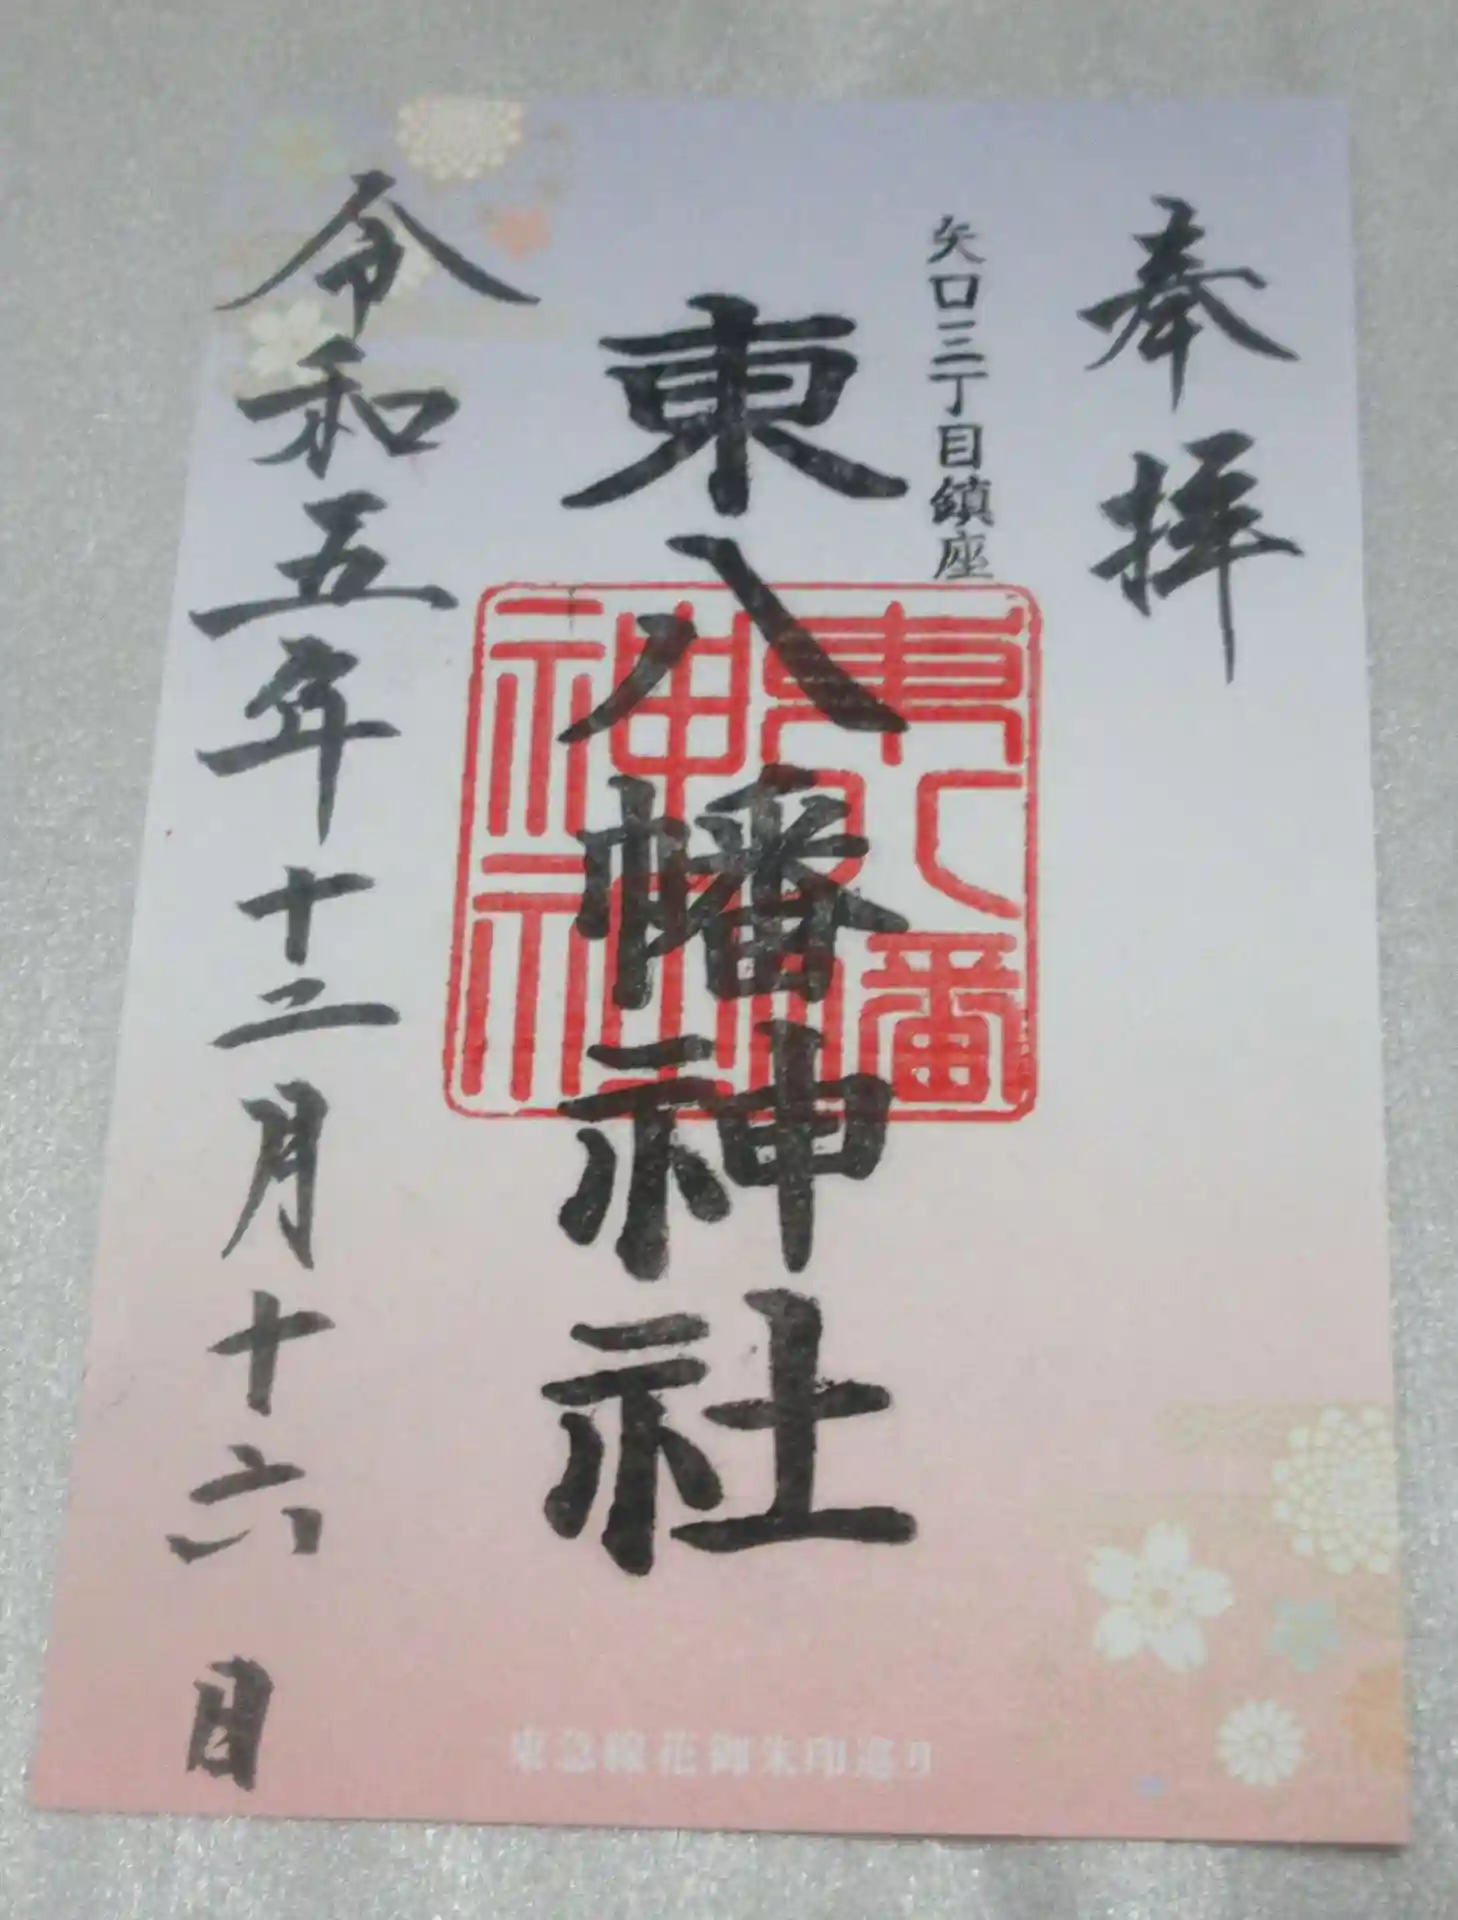 奉拝
矢口三丁目鎮座
東八幡神社
東八幡神社
令和五年十二月十六日
東急線花御朱印巡り